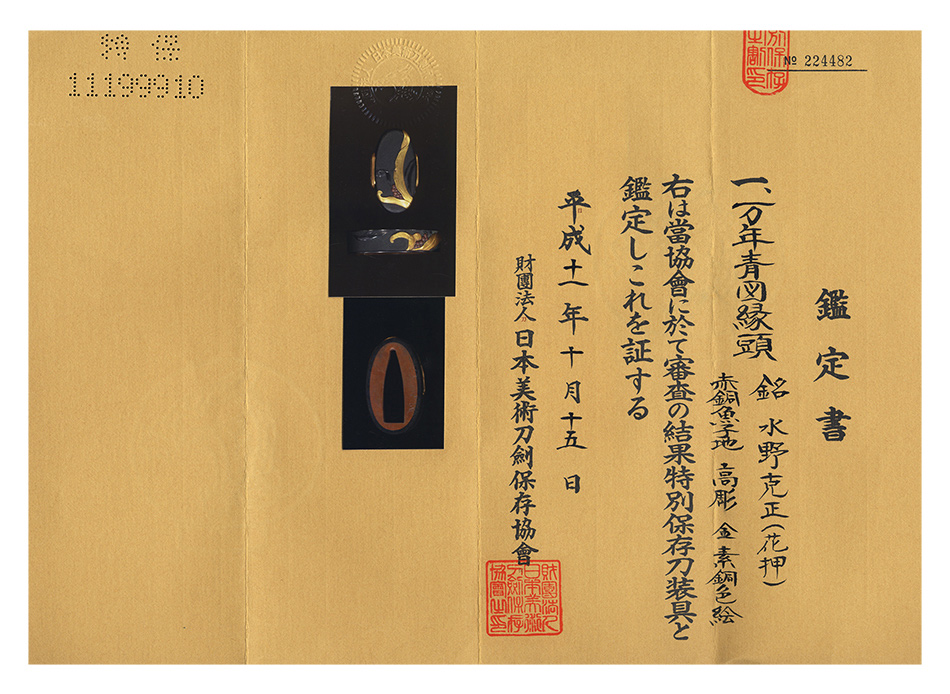 特 保
11199910
別保存
之割印
№ 224482
鑑定書
一、万年青図縁頭 銘 水野克正(花押)
赤銅魚子地 高彫 金 素銅色絵
右は當協會に於て審査の結果特別保存刀装具と
鑑定しこれを証する
平成十一年十月十五日
財團法人 日本美術刀劍保存協會
財團法人
日本美術
刀劍保存
協會之印